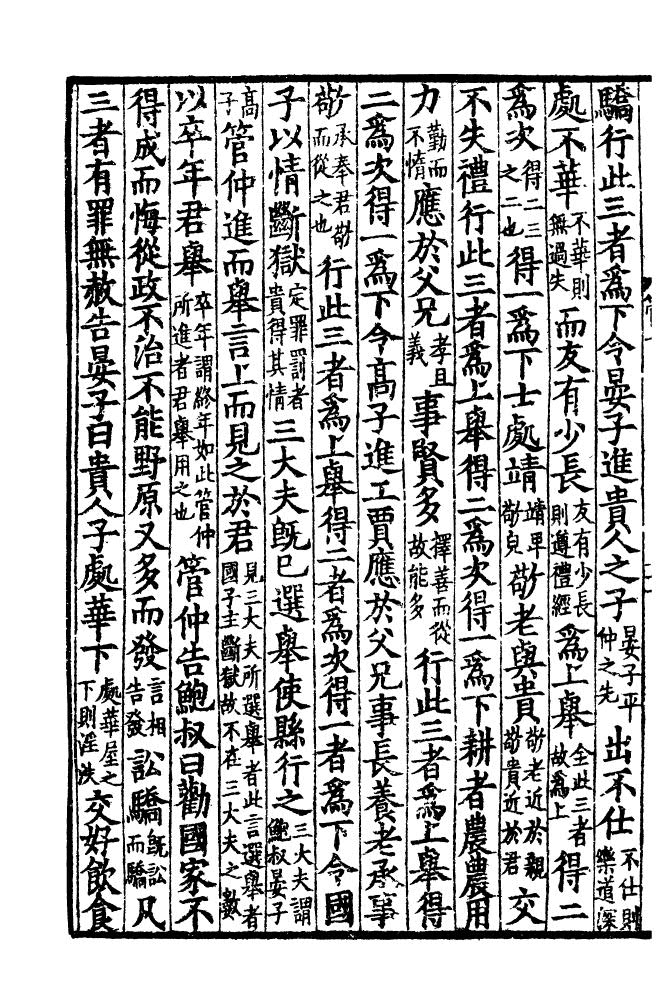 驕行此三者爲下令晏子進貴人之子晏子平仲之先出不仕不仕則樂道深
處不華不華則無過失而友有少長友有少長則遵禮經爲上舉全此三者故爲上得二
爲次得二三之二也得一爲下士處靖靖卑敬皃敬老與貴敬老近於親敬貴近於君交
不失禮行此三者爲上舉得二爲次得一爲下耕者農農用
力勤而不惰應於父兄孝且義事賢多擇善而從故能多行此三者爲上舉得
二爲次得一爲下令高子進工賈應於父兄事長養老承事
敬承奉君敬而從之也行此三者爲上舉得二者爲次得一者爲下令國
子以情斷獄定罪罰者貴得其情三大夫旣已選舉使縣行之三大夫謂鮑叔晏子
高子管仲進而舉言上而見之於君見三大夫所選舉者此言選舉者國子主斷獄故不在三大夫之數
以卒年君舉卒年謂終年如此管仲所進者君舉用之也管仲告鮑叔曰勸國家不
得成而悔從政不治不能野原又多而發言相告發訟驕旣訟而驕凡
三者有罪無赦告晏子曰貴人子處華下處華屋之下則淫泆交好飲食